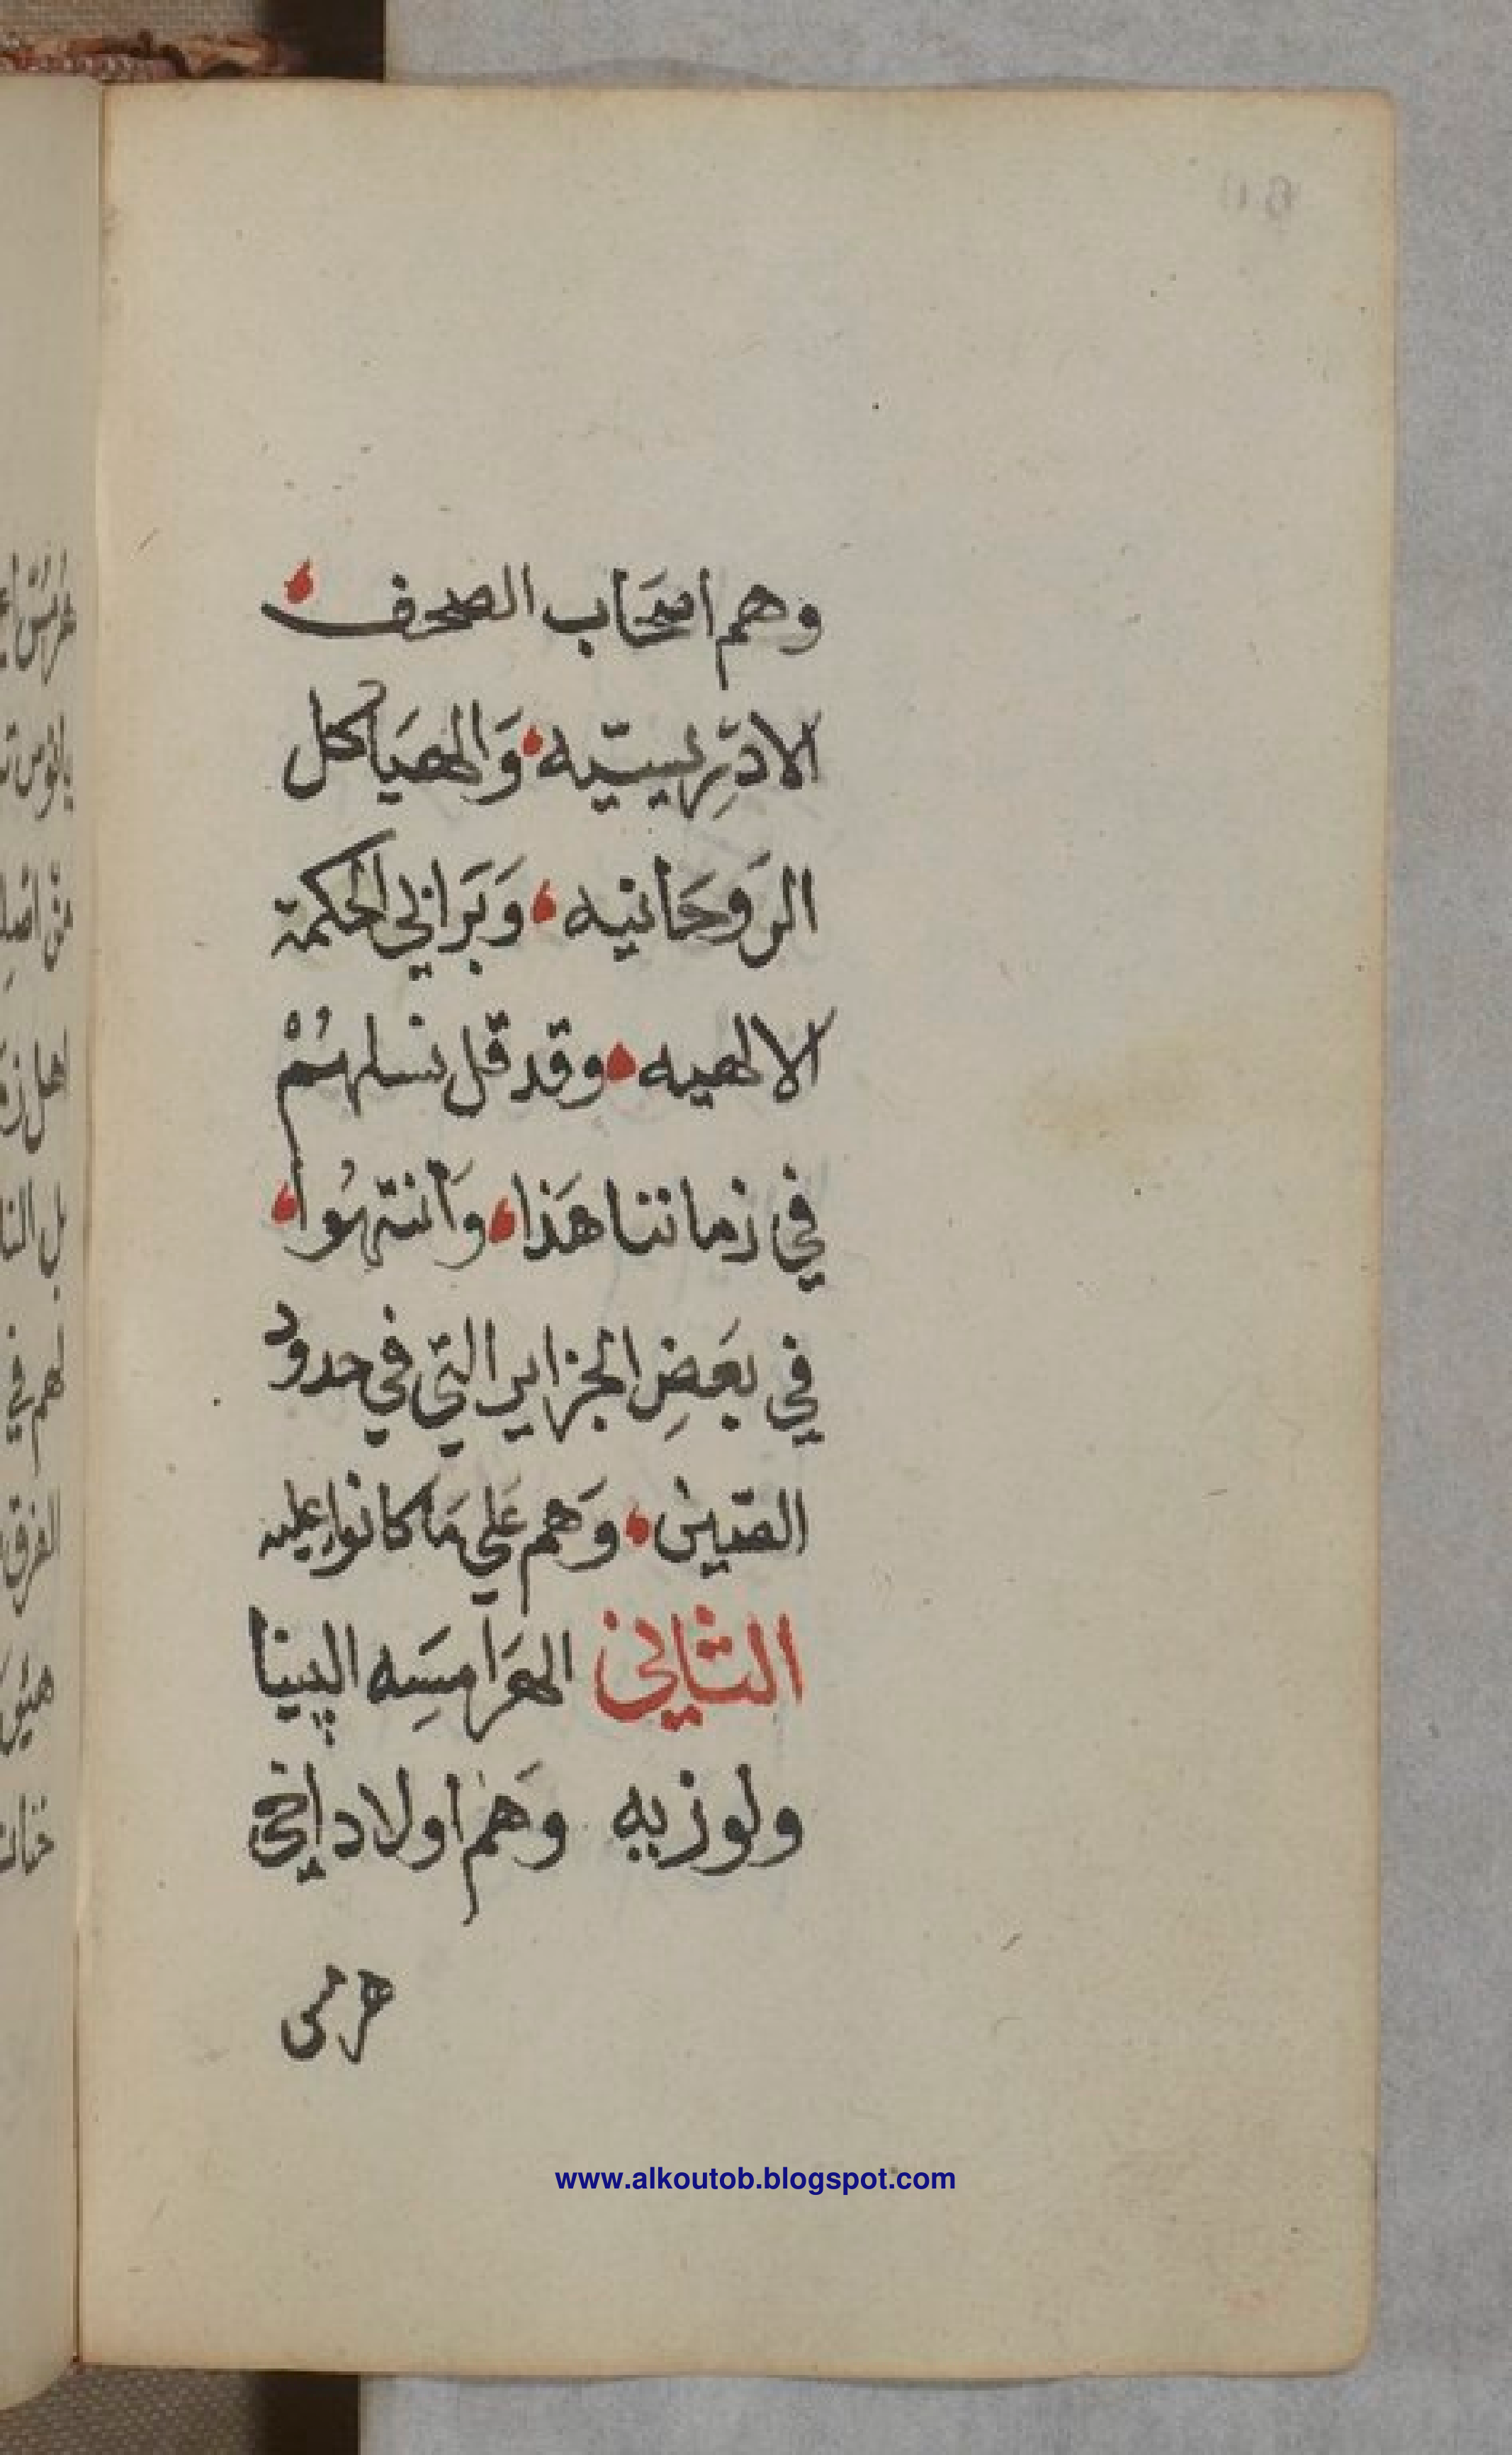 وهم اصحاب الصحف
الادريسيّه وَالهيَاكل
الروحَانيه وَبَرابي الحكمة
الالهيه وقد قل نسلهُمْ
في زماننا هَذا وَانتهُوا
في بعَضِ الجزاير التي في حدود
الصّين وَهم عَلي مَا كانوا عليه
الثاني الهَرَامِسَه البينا
ولوزيه وَهم اولاد اخي
هرمس
www.alkoutob.blogspot.com